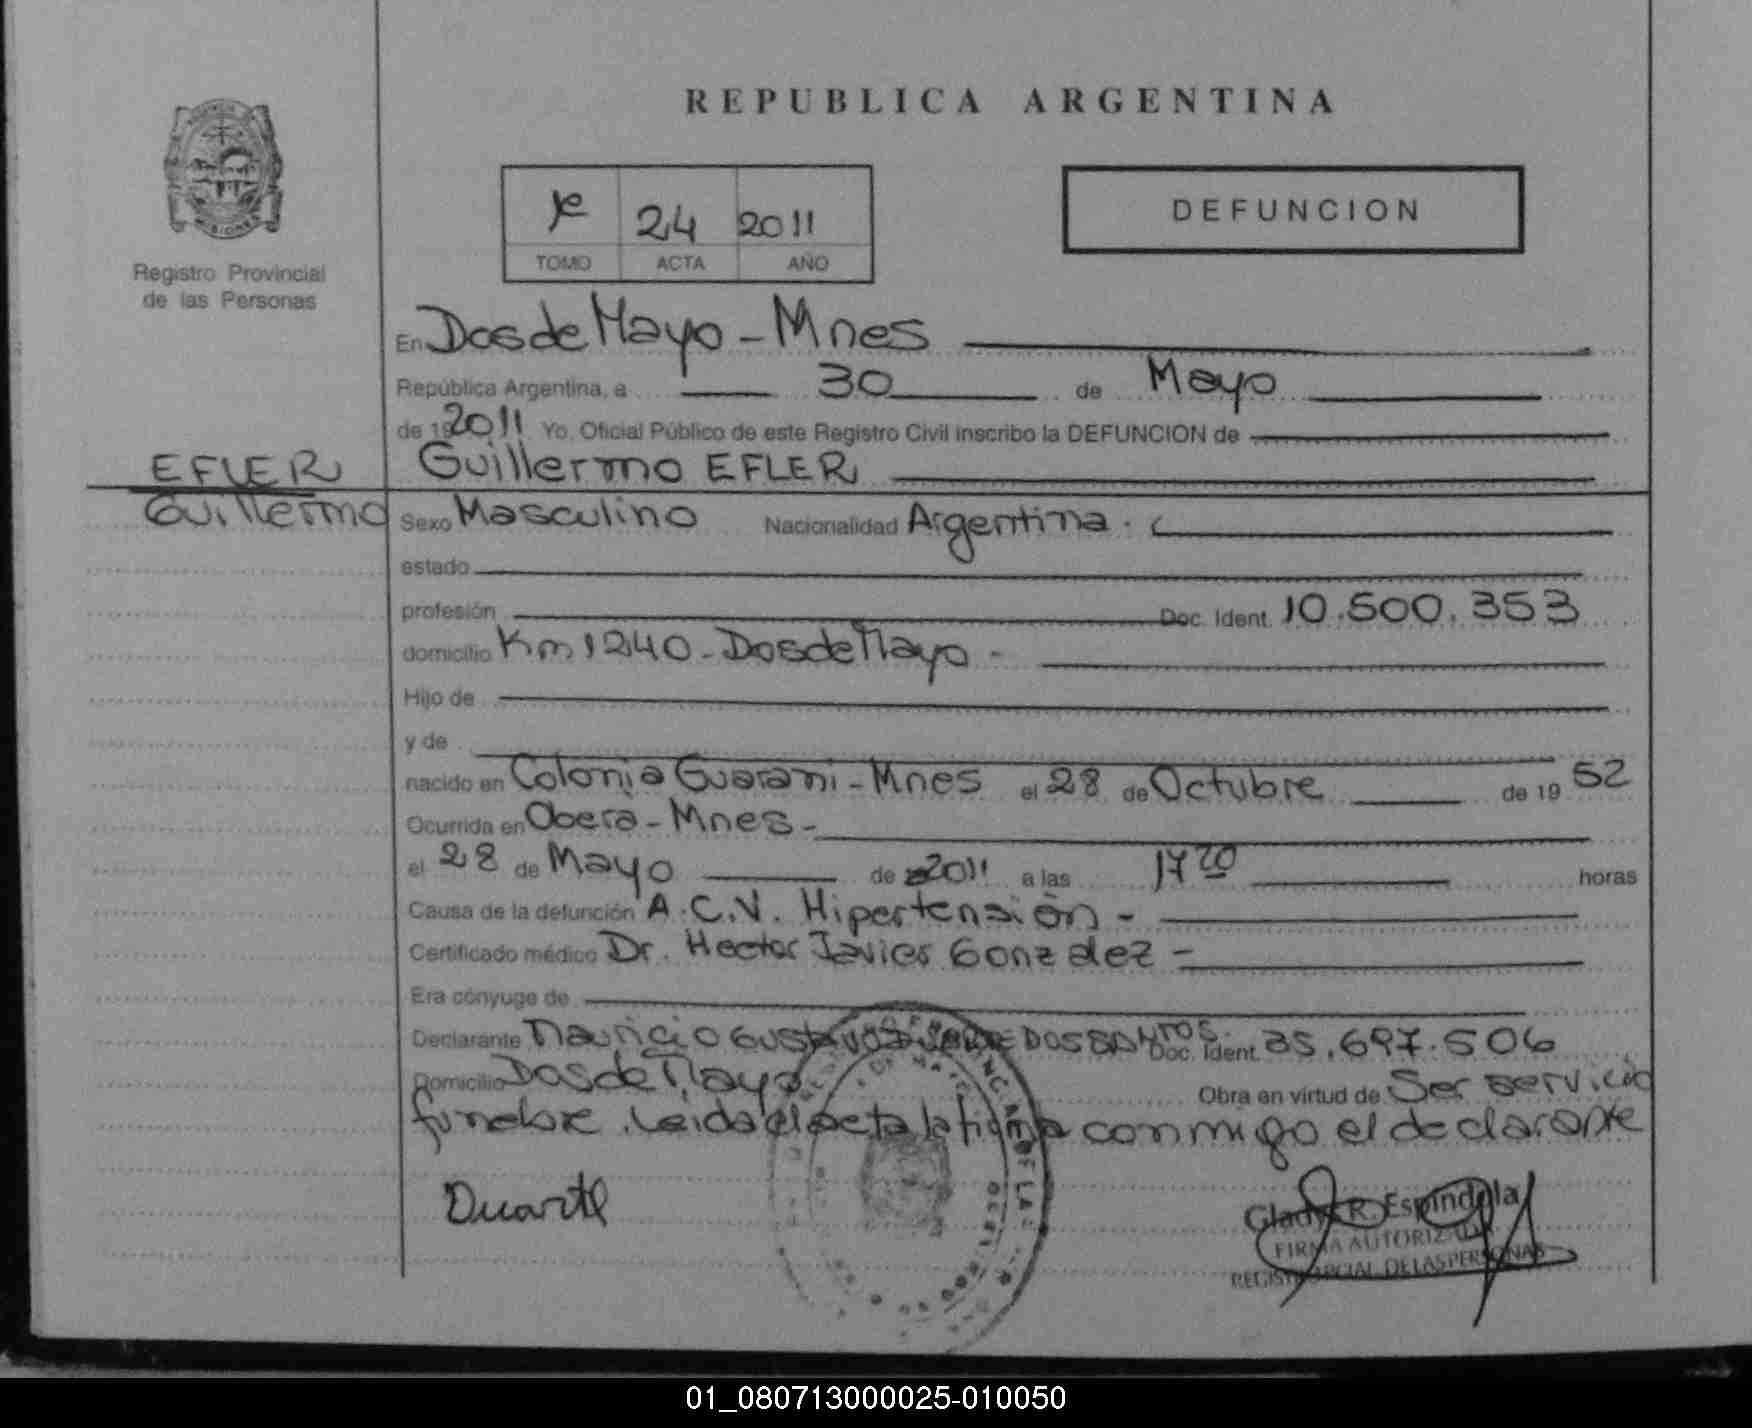 REPUBLICA ARGENTINA
24 2011
TOMO ACTA AÑO
DEFUNCION
Registro Provincial
de las Personas
En Dos de Mayo - Mnes
República Argentina, a 30 de Mayo
de 19 2011 Yo, Oficial Público de este Registro Civil inscribo la DEFUNCION de
EFLER
Guillermo
Guillermo EFLER
Sexo Masculino Nacionalidad Argentina.
estado
profesión Doc. Ident. 10.500.353
domicilio Km 1240 - Dos de Mayo -
Hijo de
y de
nacido en Colonia Guarani - Mnes el 28 de Octubre de 19 52
Ocurrida en Oberà - Mnes -
el 28 de Mayo de 2011 a las 17 20 horas
Causa de la defunción A.C.V. Hipertensión -
Certificado médico Dr. Hector Javier Gonzalez -
Era cónyuge de
Declarante Mauricio Gustavo DOSSANTOS. Doc. Ident. 35.697.506
Domicilio Dos de Mayo Obra en virtud de Ser servicio
funebre. Leida el acta la firma conmigo el declarante
Duarte
Gladys R. Espindola
FIRMA AUTORIZADA
REGIST. PCIAL. DE LAS PERSONAS
01_080713000025-010050